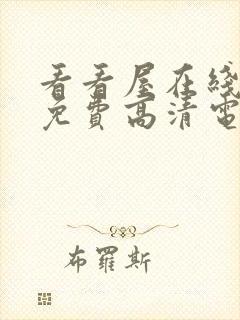 看看屋在线
免費高清電
布羅斯